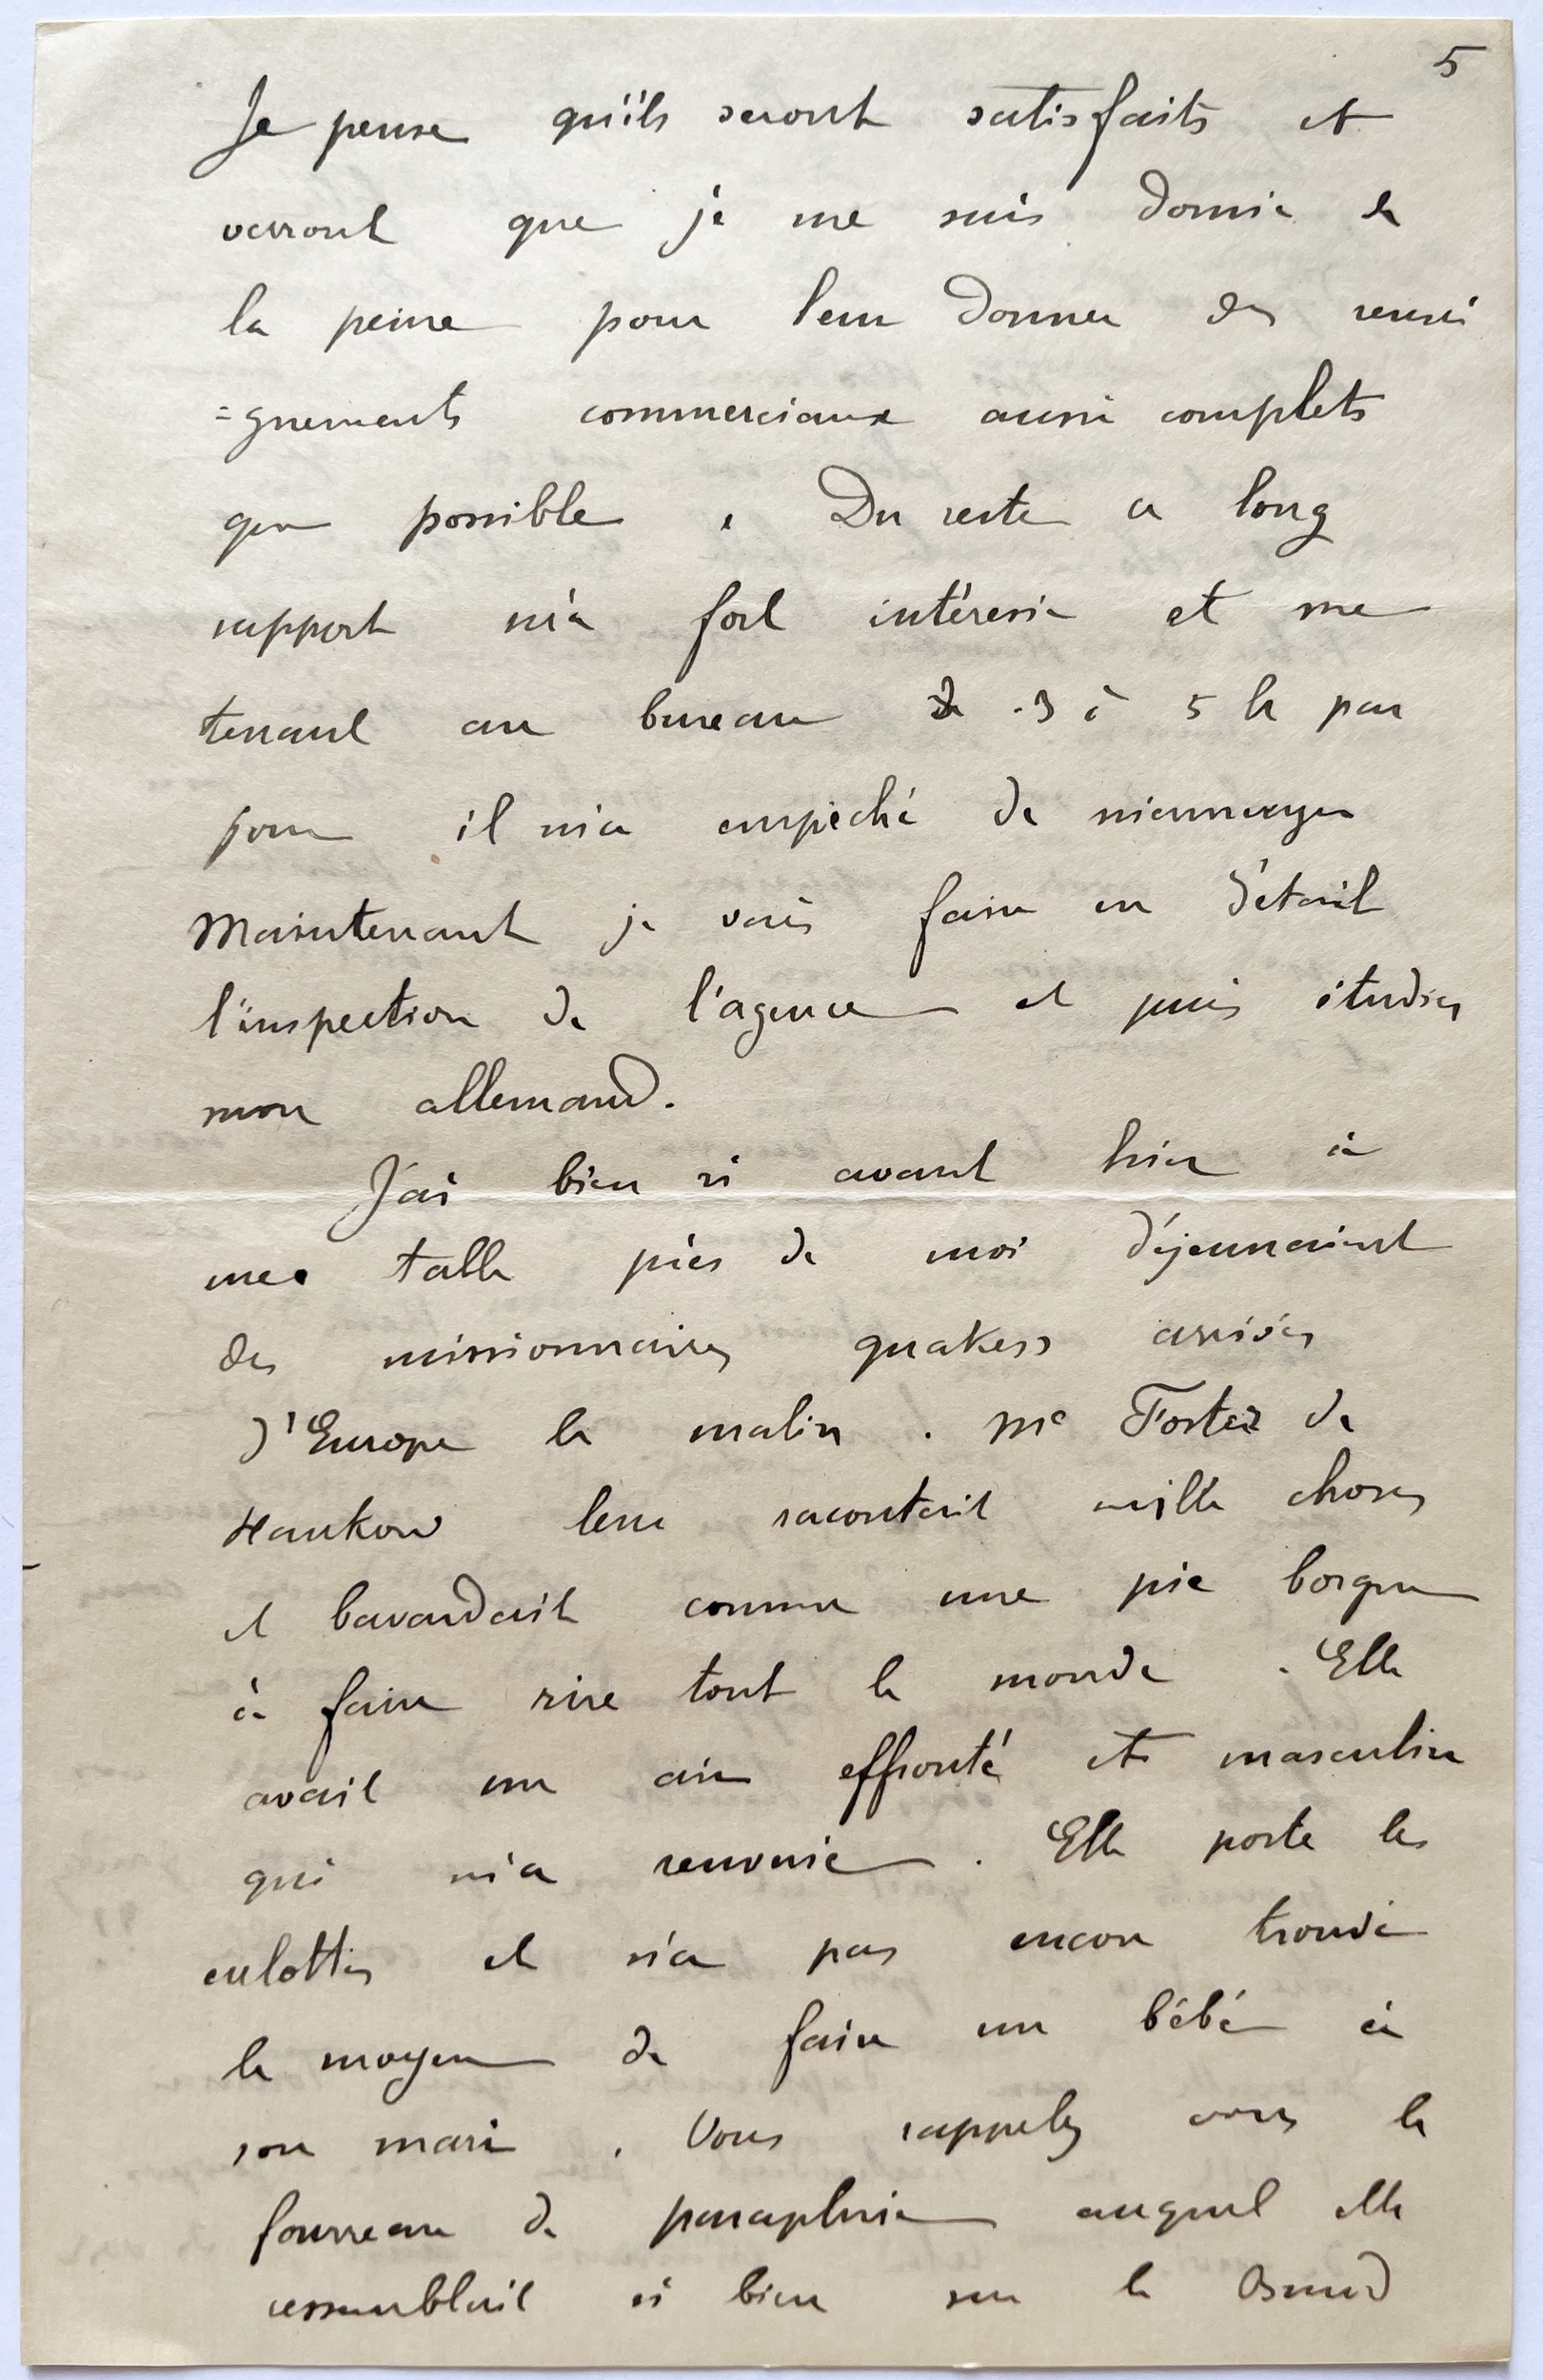 5
Je pense qu'ils seront satisfaits et
verront que je me suis donné de
la peine pour leur donner des rensei
=gnements commerciaux aussi complets
que possible. Du reste ce long
rapport m'a fort intéressé et me
tenant au bureau de 3 à 5 h par
jour il m'a empêché de m'ennuyer
Maintenant je vais faire en détail
l'inspection de l'agence et puis étudier
mon allemand.
J'ai bien ri avant hier à
une table près de moi déjeunaient
des missionnaires quakers arrivés
d'Europe le matin. Me Foster de
Hankow leur racontait mille choses
et bavardait comme une pie borgne
à faire rire tout le monde. Elle
avait un air effronté et masculin
qui m'a renversé. Elle porte les
culottes et n'a pas encore trouvé
le moyen de faire un bébé à
son mari. Vous rappelez vous le
fourreau de parapluie auquel elle
ressemblait si bien sur le